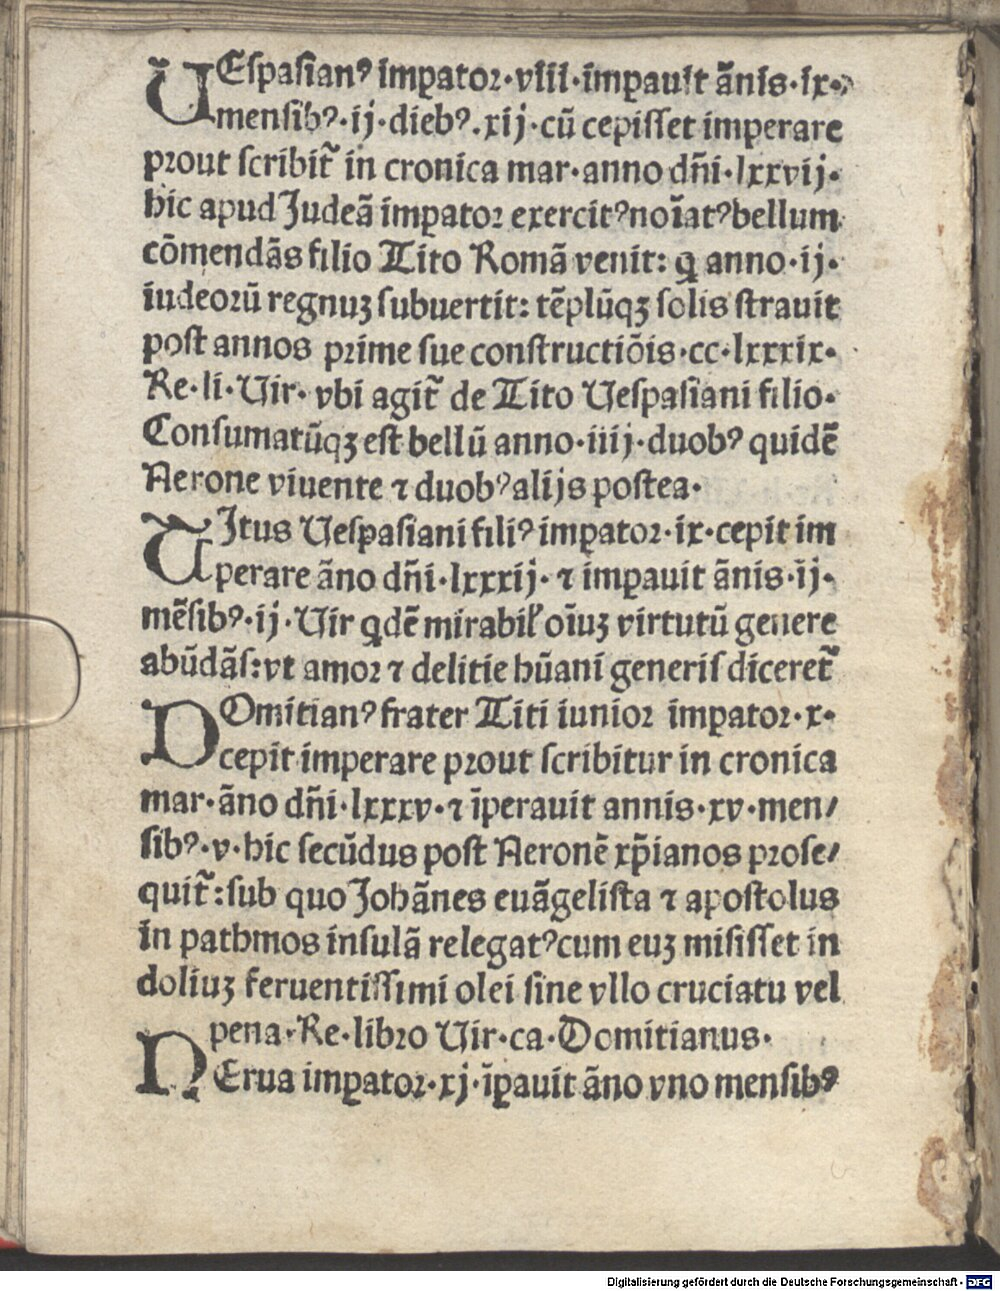 UEſpaſianꝰ imꝑator·viii·imꝑauit ãnis·ix·
menſibꝰ·ij·diebꝰ.xij·cũ cepiſſet imperare
prout ſcribit᷑ in cronica mar·anno dñi·lxxvij·
hic apud Judeã imꝑator exercitꝰnoĩatꝰbellum
cõmendãs filio Tito Romã venit: ꝗ anno·ij·
iudeorũ regnuꝫ ſubuertit: tẽplũqꝫ ſolis ſtrauit
poſt annos prime ſue conſtructiõis·cc·lxxxix·
Re·li·Uir· vbi agit᷑ de Tito Ueſpaſiani filio·
Conſumatũqꝫ eſt bellũ anno·iiij·duobꝰ quidẽ
Nerone viuente ⁊ duobꝰalijs poſtea·
TJtus Ueſpaſiani filiꝰ imꝑator·ix·cepit im
perare ãno dñi·lxxxij· ⁊ imꝑauit ãnis·ij·
mẽſibꝰ·ij·Uir ꝗdẽ mirabił oĩuꝫ virtutũ genere
abũdãſ:vt amor ⁊ delitie hũani generiſ diceret᷑
DOmitianꝰ frater Titi iunior imꝑator·x·
cepit imperare prout ſcribitur in cronica
mar·ãno dñi·lxxxv·⁊ ĩperauit annis·xv·men/
ſibꝰ·v·hic ſecũdus poſt Neronẽ xp̃ianos proſe/
quit᷑:ſub quo Johãnes euãgeliſta ⁊ apoſtolus
in pathmos inſulã relegatꝰcum euꝫ miſiſſet in
doliuꝫ feruentiſſimi olei ſine vllo cruciatu vel
pena·Re·libro Uir·ca·Domitianus·
NErua imꝑator·xj·ĩꝑauit ãno vno menſibꝰ
Digitalisierung gefördert durch die Deutsche Forschungsgemeinschaft - DFG